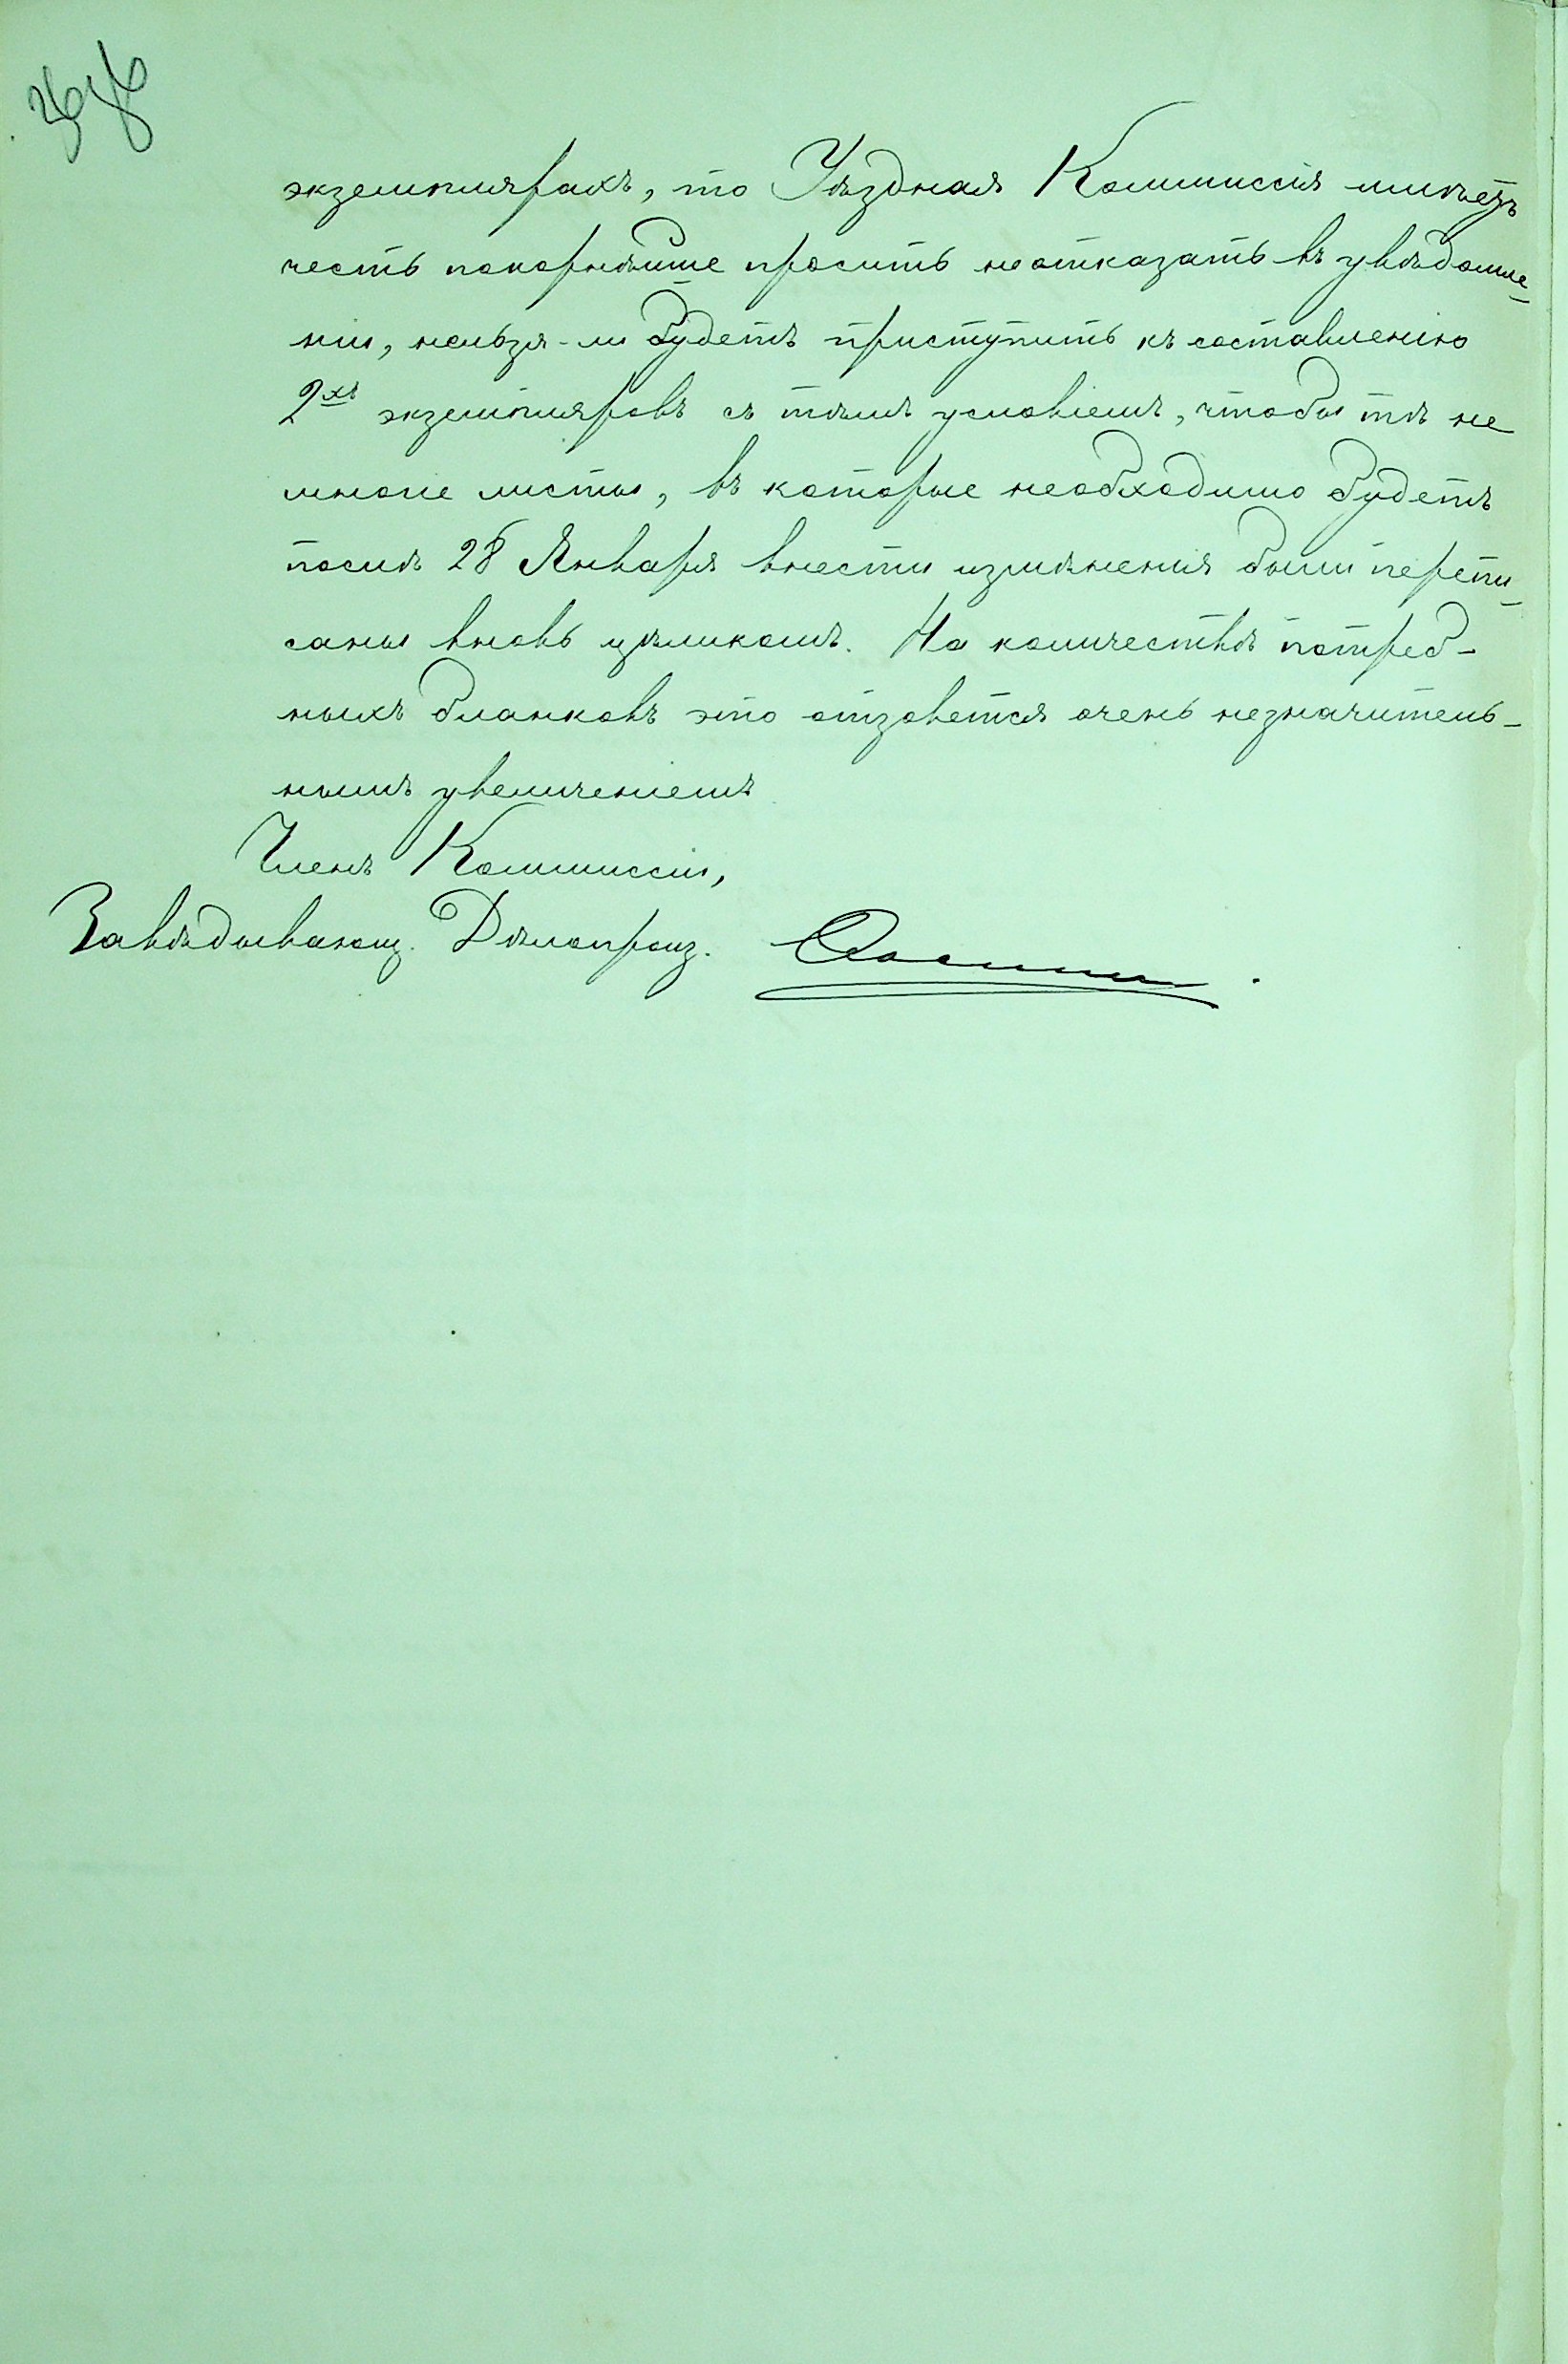 экземплярахъ, то Уѣздная Коммиссія имѣетъ
честь покорнѣйше просить не отказать въ увѣдомле-
ніи, нельзя-ли будетъ приступить къ составленію
2хъ экземпляровъ съ тѣмъ условіемъ, чтобы тѣ не
многіе листы, въ которые необходимо будетъ
послѣ 28 Января внести измѣненія были перепи-
саны вновь цѣликомъ. На количествѣ потреб-
ныхъ бланковъ это отзовется очень незначитель-
нымъ увеличеніемъ
Членъ Коммиссіи,
Завѣдывающ. Дѣлопроиз.